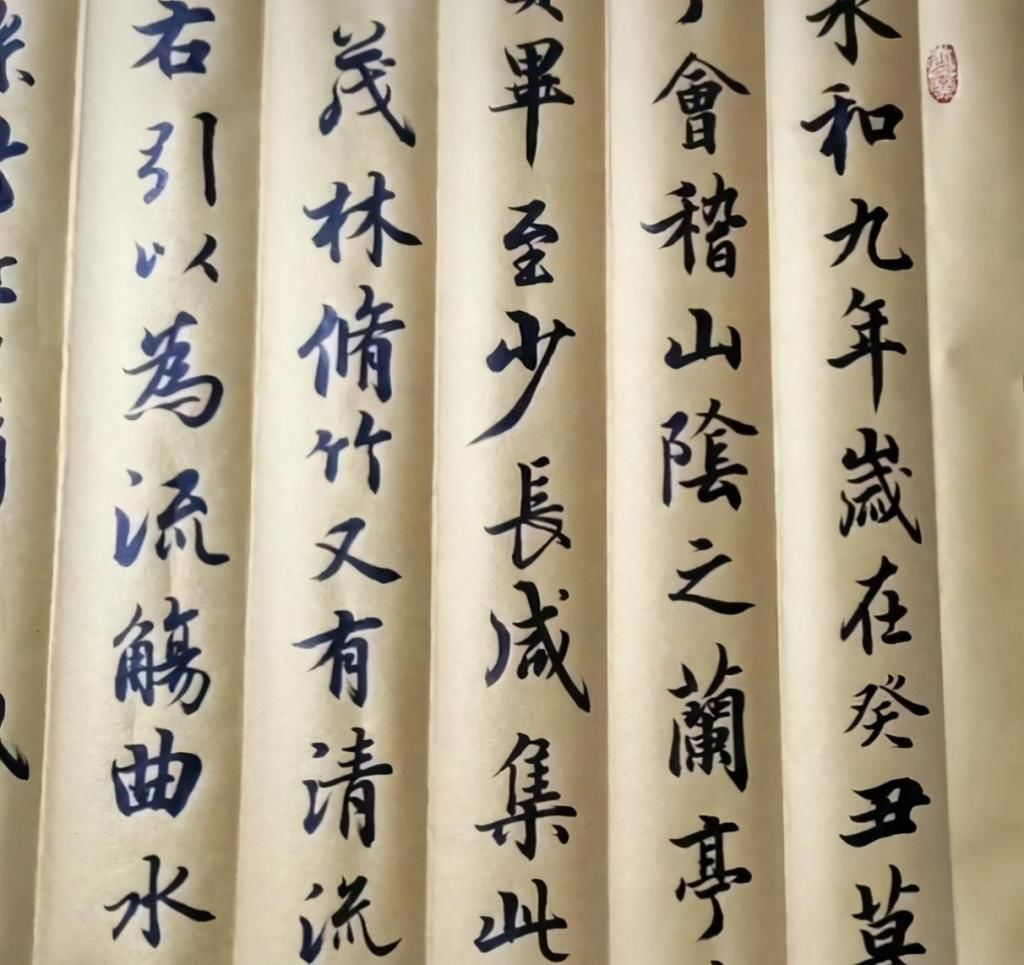 永和九年歲在癸丑暮
會稽山陰之蘭亭
畢至少長咸集此
茂林脩竹又有清流
右引以為流觴曲水